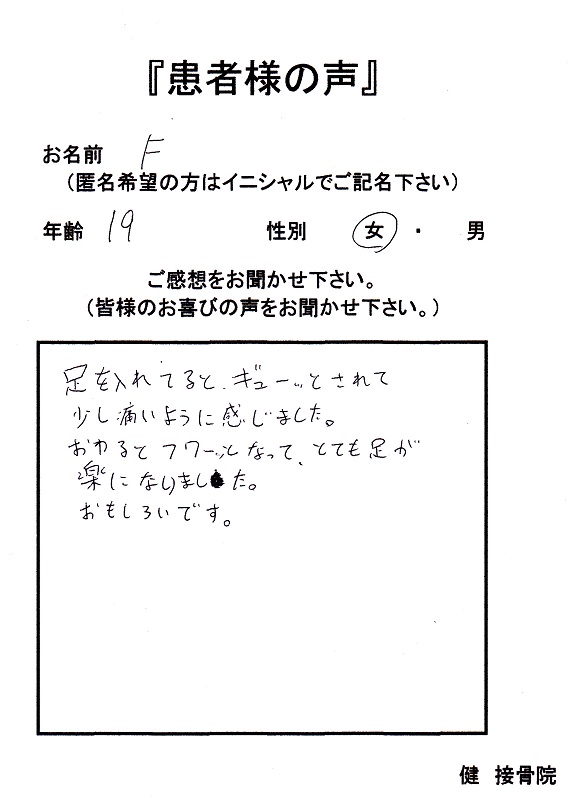 『患者様の声』
お名前 F
（匿名希望の方はイニシャルでご記名下さい）
年齢 19 性別 女 ・ 男
ご感想をお聞かせ下さい。
（皆様のお喜びの声をお聞かせ下さい。）
足を入れてると、ギューッとされて
少し痛いように感じました。
おわるとフワーッとなって、とても足が
楽になりました。
おもしろいです。
健 接骨院